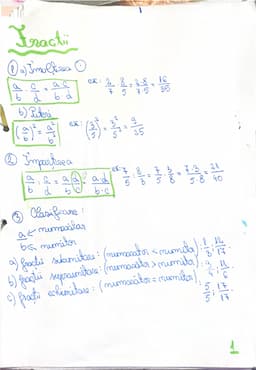 Fractii
① a) Înmulțirea ⊙
a/b · c/d = a·c/b·d ex: 2/7 · 8/5 = 2·8/7·5 = 16/35
b) Puteri
(a/b)² = a²/b² ex: (3/5)² = 3²/5² = 9/25
② Împărțirea
a/b : c/d = a/b · d/c = a·d/b·c ex: 7/5 : 8/3 = 7/5 · 3/8 = 7·3/5·8 = 21/40
③ Clasificare:
a ← numărător
b ← numitor
a) fracții subunitare: (numărător < numitor): 1/3; 14/17
b) fracții supraunitare: (numărător > numitor):
c) fracții echiunitare: (numărător = numitor): 5/5; 17/17
1